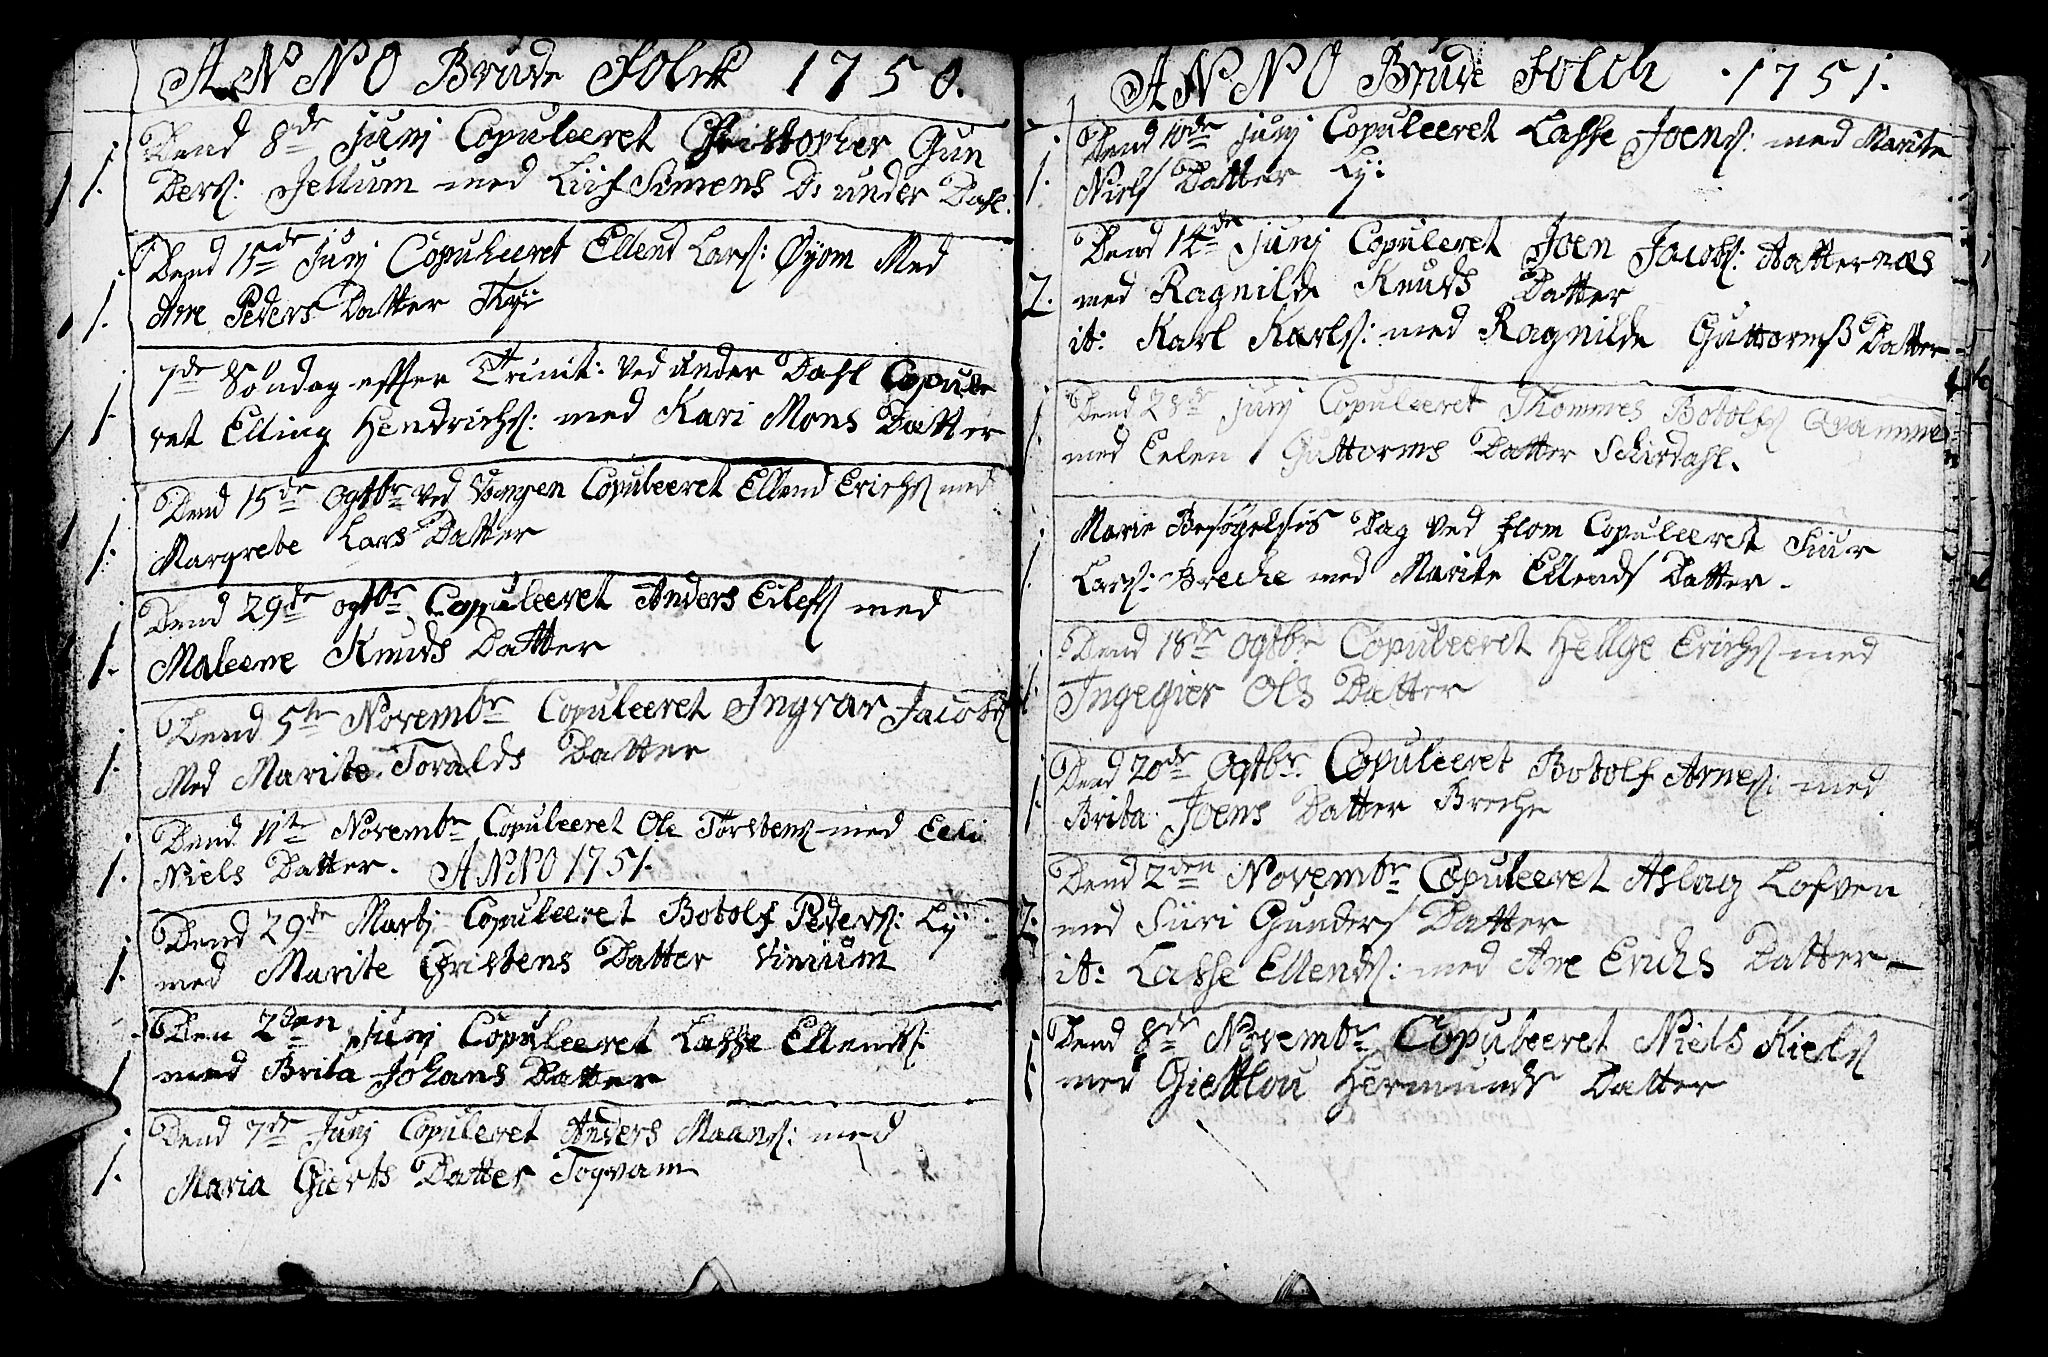 ANNO Brude Folck 1750.
1. Dend 8de Junj Copuleeret Christopher Gun
ders: Fellum med Liif Simens D: under Dahl.
1. Dend 15de Junj Copuleeret Ellend Lars: Øyom Med
Ane Peders Datter Fly:
1. 7de Søndag efter Trinit: ved under Dahl Copulee
ret Elling Hendrichs: med Kari Mons Datter
1. Dend 15de Ogtbr ved Vangen Copuleeret Ellend Erichs med
Margrete Lars Datter
1. Dend 29de ogtbr Copuleeret Anders Eilefs med
Maleene Knuds Datter
1. Dend 5te Novembr Copuleeret Ingvar Jacobs
Med Marite Toralds Datter
1. Dend 11te Novembr Copuleeret Ole Torstens med Eeli
Niels Datter. ANNO 1751.
1. Dend 29de Martj Copuleeret Botolf Peders: Lÿ:
med Marite Christens Datter Vinium
1 Den 2den Junj Copuleeret Lasse Ellends:
med Brita Johans Datter
1. Dend 7de Junj Copuleret Anders Maans: med
Maria Gierts Datter Toqvam
ANNO Brude Folch 1751.
1. Dend 10de Junj Copuleeret Lasse Joens: med Marite
Niels Datter Ly:
2. Dend 14de Junj Copuleret Joen Jacobs: Aatternæs
med Ragnilde Knuds Datter
it: Karl Karls: med Ragnilde Guttormß Datter
1. Dend 28de Junj Copuleeret Thommes Botolfs Qvamme
med Eelen Guttorms Datter Schirdahl.
1. Marie Besøgelsis Dag ved flom Copuleeret Siur
Lars: Breche med Marite Ellends Datter.
1. Dend 18de Ogtbr Copuleeret Hellge Erichs med
Ingegier Ols Datter
1. Dend 20de Ogtbr Copuleeret Botolf Arnes: med
Brita Joens Datter Breche
2. Dend 2den Novembr Copuleeret Aslag Lofven
med Siiri Gunders Datter
it: Lasse Ellends: med Ane Erichs Datter
1. Dend 8de Novembr Copuleeret Niels Kiels
med Giettlou Hermunds Datter